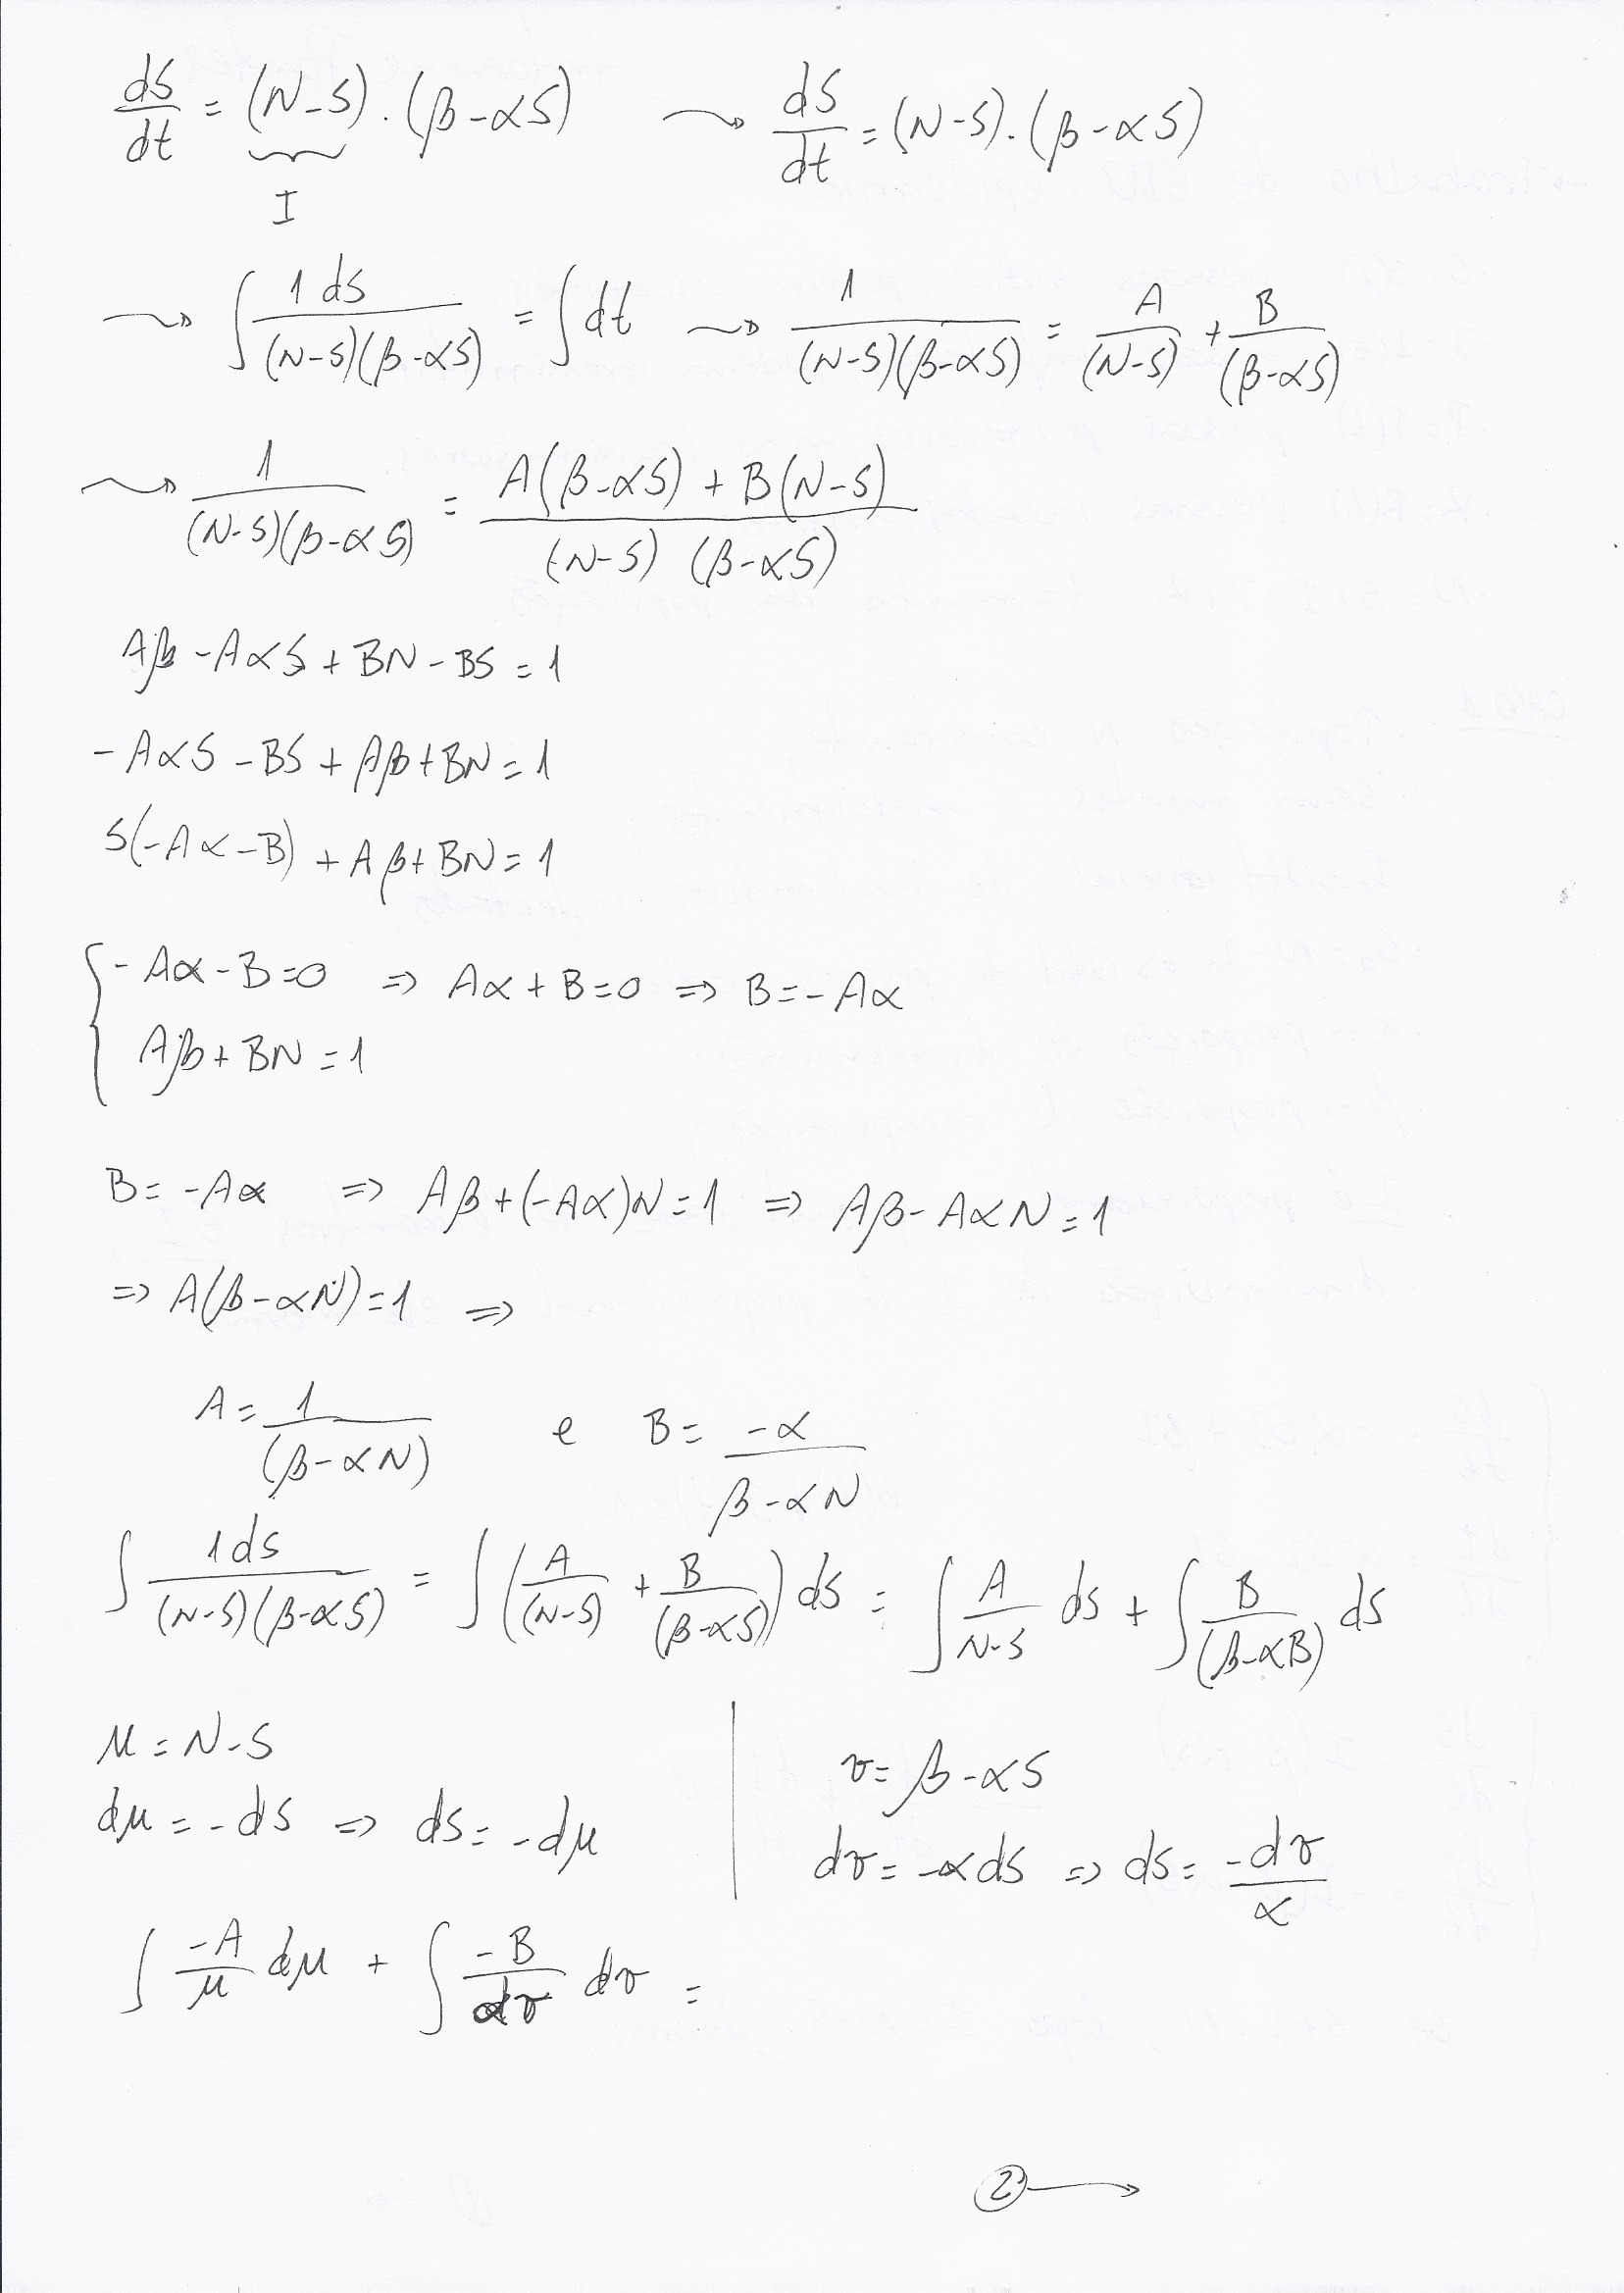 dS/dt = (N-S).(β-αS) ⇝ dS/dt = (N-S).(β-αS)
I
⇝ ∫ 1 dS/((N-S)(β-αS)) = ∫dt ⇝ 1/((N-S)(β-αS)) = A/(N-S) + B/(β-αS)
⇝ 1/((N-S)(β-αS)) = (A(β-αS) + B(N-S))/((N-S) (β-αS))
Aβ - AαS + BN - BS = 1
- AαS - BS + Aβ + BN = 1
S(-Aα - B) + Aβ + BN = 1
{ - Aα - B = 0 ⇒ Aα + B = 0 ⇒ B = - Aα
Aβ + BN = 1
B = - Aα ⇒ Aβ + (-Aα)N = 1 ⇒ Aβ - AαN = 1
⇒ A(β - αN) = 1 ⇒
A = 1/(β - αN) e B = -α/(β - αN)
∫ 1 dS/((N-S)(β-αS)) = ∫ (A/(N-S) + B/(β-αS)) dS = ∫ A/(N-S) dS + ∫ B/(β-αB) dS
μ = N-S | v = β-αS
dμ = -dS ⇒ dS = -dμ | dv = -αdS ⇒ dS = -dv/α
∫ -A/μ dμ + ∫ -B/(αv) dv =
② →